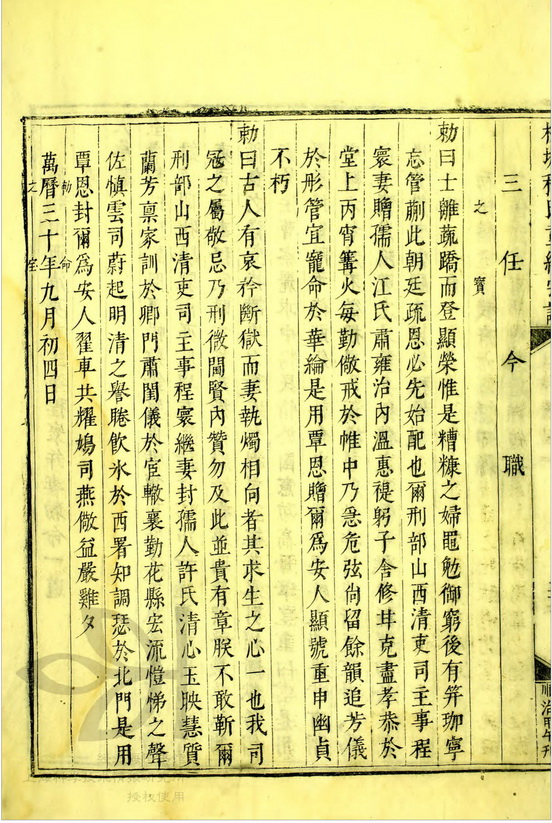 三任今職
之寶
勅曰士離蔬蹻而登顯榮惟是糟糠之婦黽勉御窮後有笄珈寧
忘管蒯此朝廷疏恩必先始配也爾刑部山西清吏司主事程
寰妻贈孺人江氏肅雍治內溫惠禔躬子舍修 克盡孝恭於
堂上丙宵篝火每勤儆戒於帷中乃 危弦尚留餘韻追芳儀
於彤管宜寵命於華綸是用覃恩贈爾為安人顯號重申幽貞
不朽
勅曰古人有哀矜斷獄而妻執燭相向者其求生之心一也我司
冦之屬敬忌乃刑微閫賢內贊勿及此並貴有章朕不敢靳爾
刑部山西清吏司主事程寰繼妻封孺人許氏清心玉映慧質
蘭芳稟家訓於卿門肅閨儀於宦轍襄勤花縣宏流愷悌之聲
佐慎雲司蔚起明清之譽睠飲氷於西署知調瑟於北門是用
覃恩封爾為安人翟車共耀鳲司燕儆益嚴雞夕
勅命
萬曆三十年九月初四日
之宝
授权使用